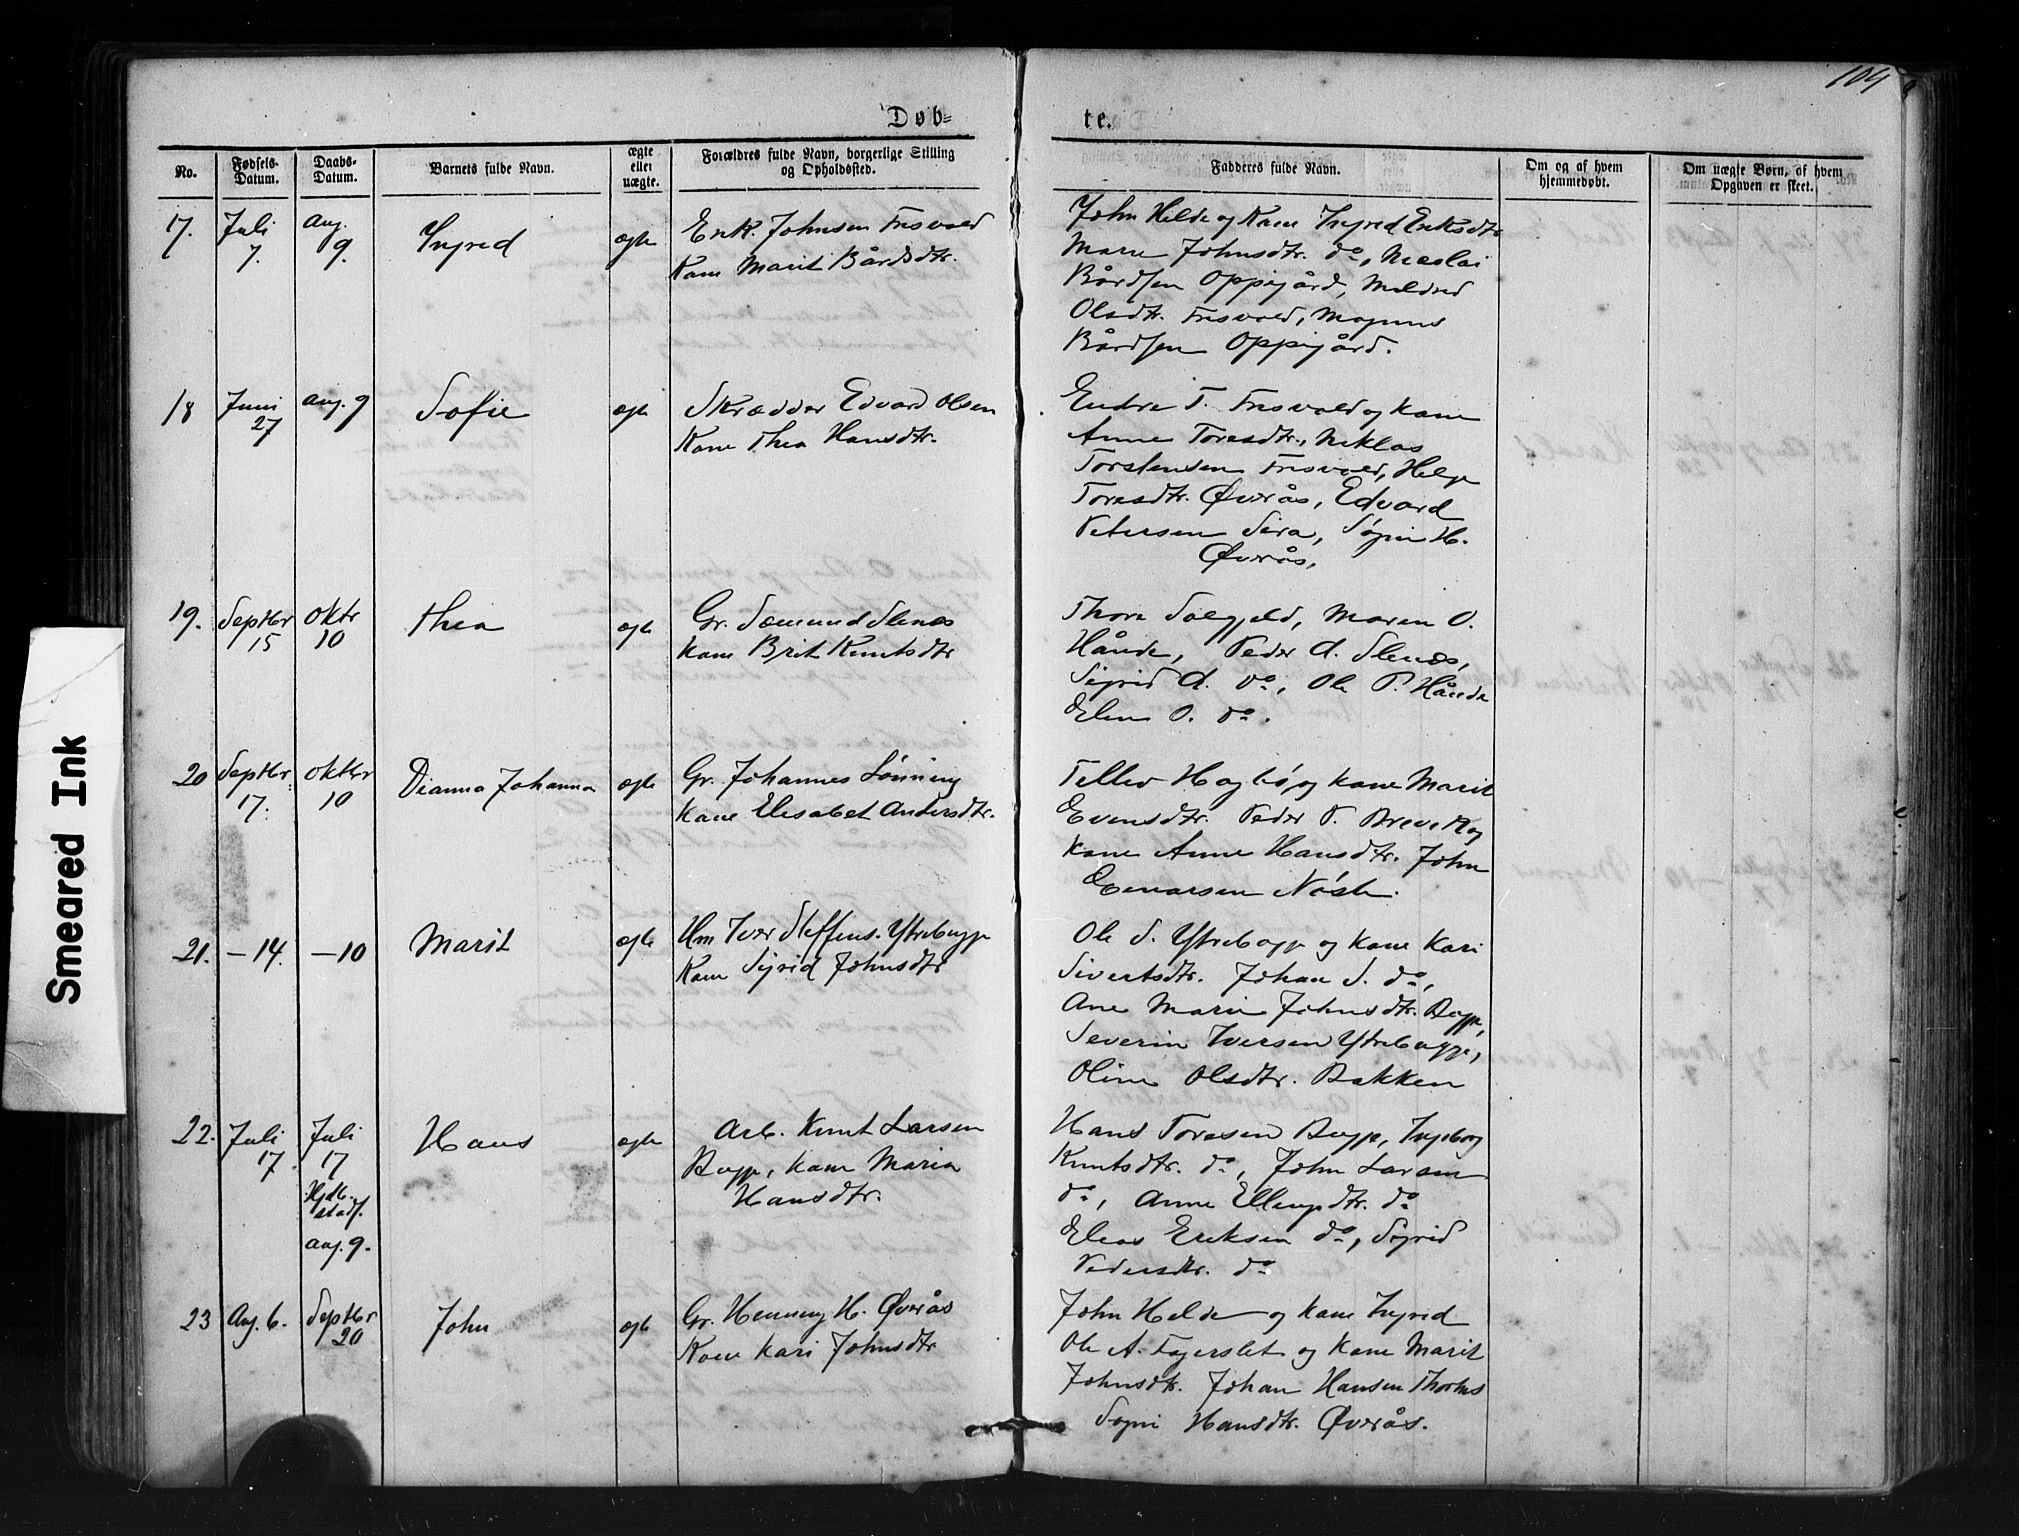 104
Døb=
te.
No.
Fødsels-
Datum.
Daabs-
Datum.
Barnets fulde Navn.
ægte
eller
uægte.
Forældres fulde Navn, borgerlige Stilling
og Opholdssted.
Fadderes fulde Navn.
Om og af hvem
hjemmedøbt.
Om uægte Børn, af hvem
Opgaven er skeet.
17.
Juli
7.
Aug.
9.
Ingrid
ægte
Erik Johnsen Frisvold
Kone Marit Bårdsdtr.
John Helde og Kone Ingrid Eriksdtr
Marie Johnsdtr. do,
Bårdsen Oppigård, Mildrid
Olsdtr. Frisvold, Magnus
Bårdsen Oppigård.
18
Juni
27
Aug. 9
Sofie
ægte
Skrædder Edvard Olsen
Kone Thea Hansdtr.
Endre T. Frisvold og Kone
Anne Toresdtr., Niklas
Torstensen Frisvold, Helge
Toresdtr. Øverås, Edvard
Petersen Sira, Søgni H.
Øverås,
19.
Septbr
15
Oktr
10
Thea
ægte
Gr. Sæmund Slenæs
Kone Brit Knutsdtr
Thore Solgjeld, Maren O.
Hånde, Peder A. Slenæs,
Sigrid A. do, Ole P. Hånde
Elen O. do.
20
Septbr.
17.
Oktbr
10
Dianna Johanna
ægte
Gr. Johannes Lønning
Kone Elisabet Andersdtr.
Tellev Hagbø og Kone Marit
Evensdtr. Peder P. Brevik og
Kone Anne Hansdtr. John
Einarsen Nøste.
21.
- 14.
- 10
Marit
ægte
Hm Iver Steffens. Ytrebugge
Kone Sigrid Johnsdtr
Ole S. Ytrebugge og Kone Kari
Sivertsdtr. Johan S. do,
Ane Marie Johnsdtr. Bugge,
Severin Iversen Ytrebugge,
Oline Olsdtr. Bakken
22.
Juli
17.
Juli
17
Hjdb.
stadf.
Aug. 9.
Hans
ægte
Arb. Knut Larsen
Bugge, Kone Maria
Hansdtr.
Hans Toresen Bugge, Ingeborg
Knutsdtr. do, John Larsen
do, Anne Ellingsdtr. do
Elias Eriksen do, Sigrid
Pedersdtr. do
23
Aug. 6.
Septbr
20
John
ægte
Gr. Henning H. Øverås
Kone Kari Johnsdtr
John Helde og Kone Ingrid
Ole A. Fagerslet og Kone Marit
Johnsdtr. Johan Hansen
Søgni Hansdtr. Øverås.
Smeared Ink